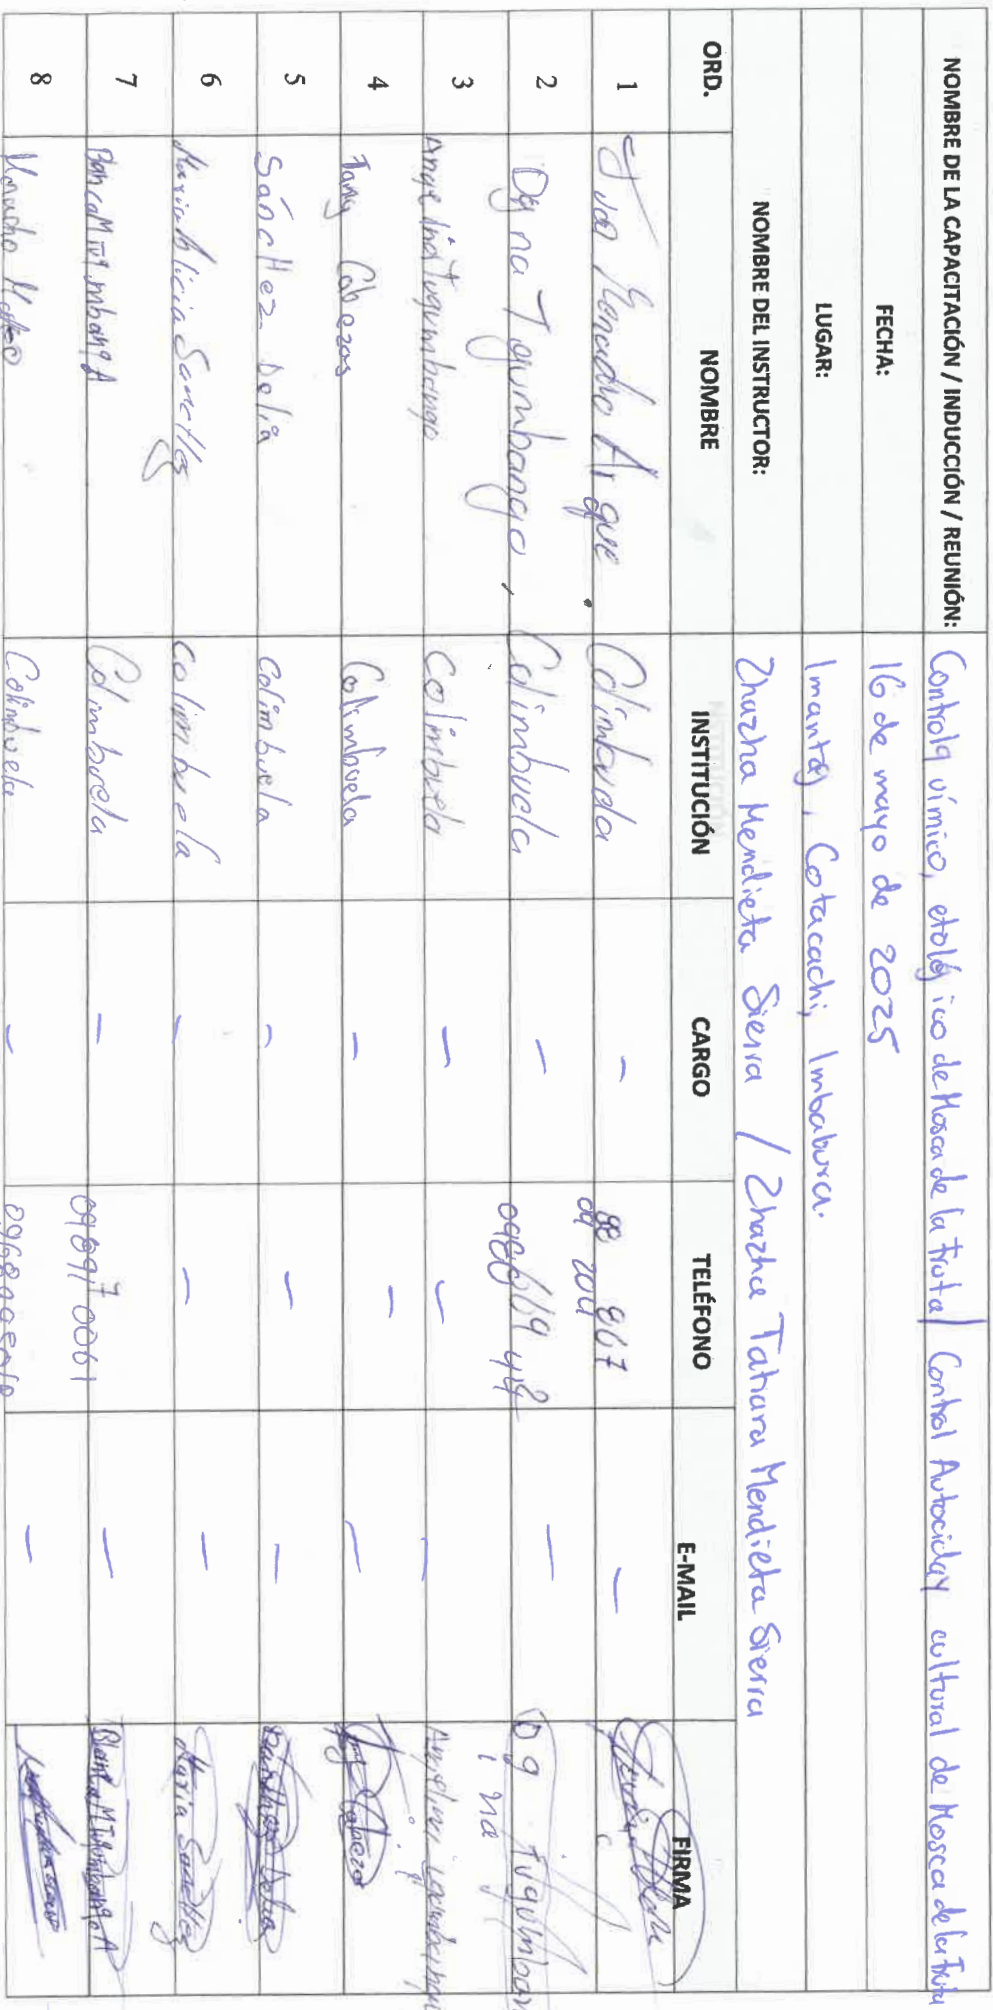 NOMBRE DE LA CAPACITACIÓN / INDUCCIÓN / REUNIÓN: Control químico, etológico de Mosca de la fruta / Control Autocida y cultural de Mosca de la Fruta
FECHA: 16 de mayo de 2025
LUGAR: Imantag, Cotacachi, Imbabura.
NOMBRE DEL INSTRUCTOR: Zhazha Mendieta Sierra / Zhazha Tatiana Mendieta Sierra
ORD. NOMBRE INSTITUCIÓN CARGO TELÉFONO E-MAIL FIRMA
1 Colimbuela — —
2 Digna Tuquimbango, Colimbuela — —
3 Angelina Tuquimbango Colimbuela — — —
4 Tany Cabezas Colimbuela — — —
5 Sánchez Delia Colimbuela — — — Sanchez Delia
6 Maria Sanchez Colimbuela — — — Maria Sanchez
7 Blanca M Tuquimbango A Colimbuela — 0989170061 — Blanca M Tuquimbango A
8 Colimbuela — —